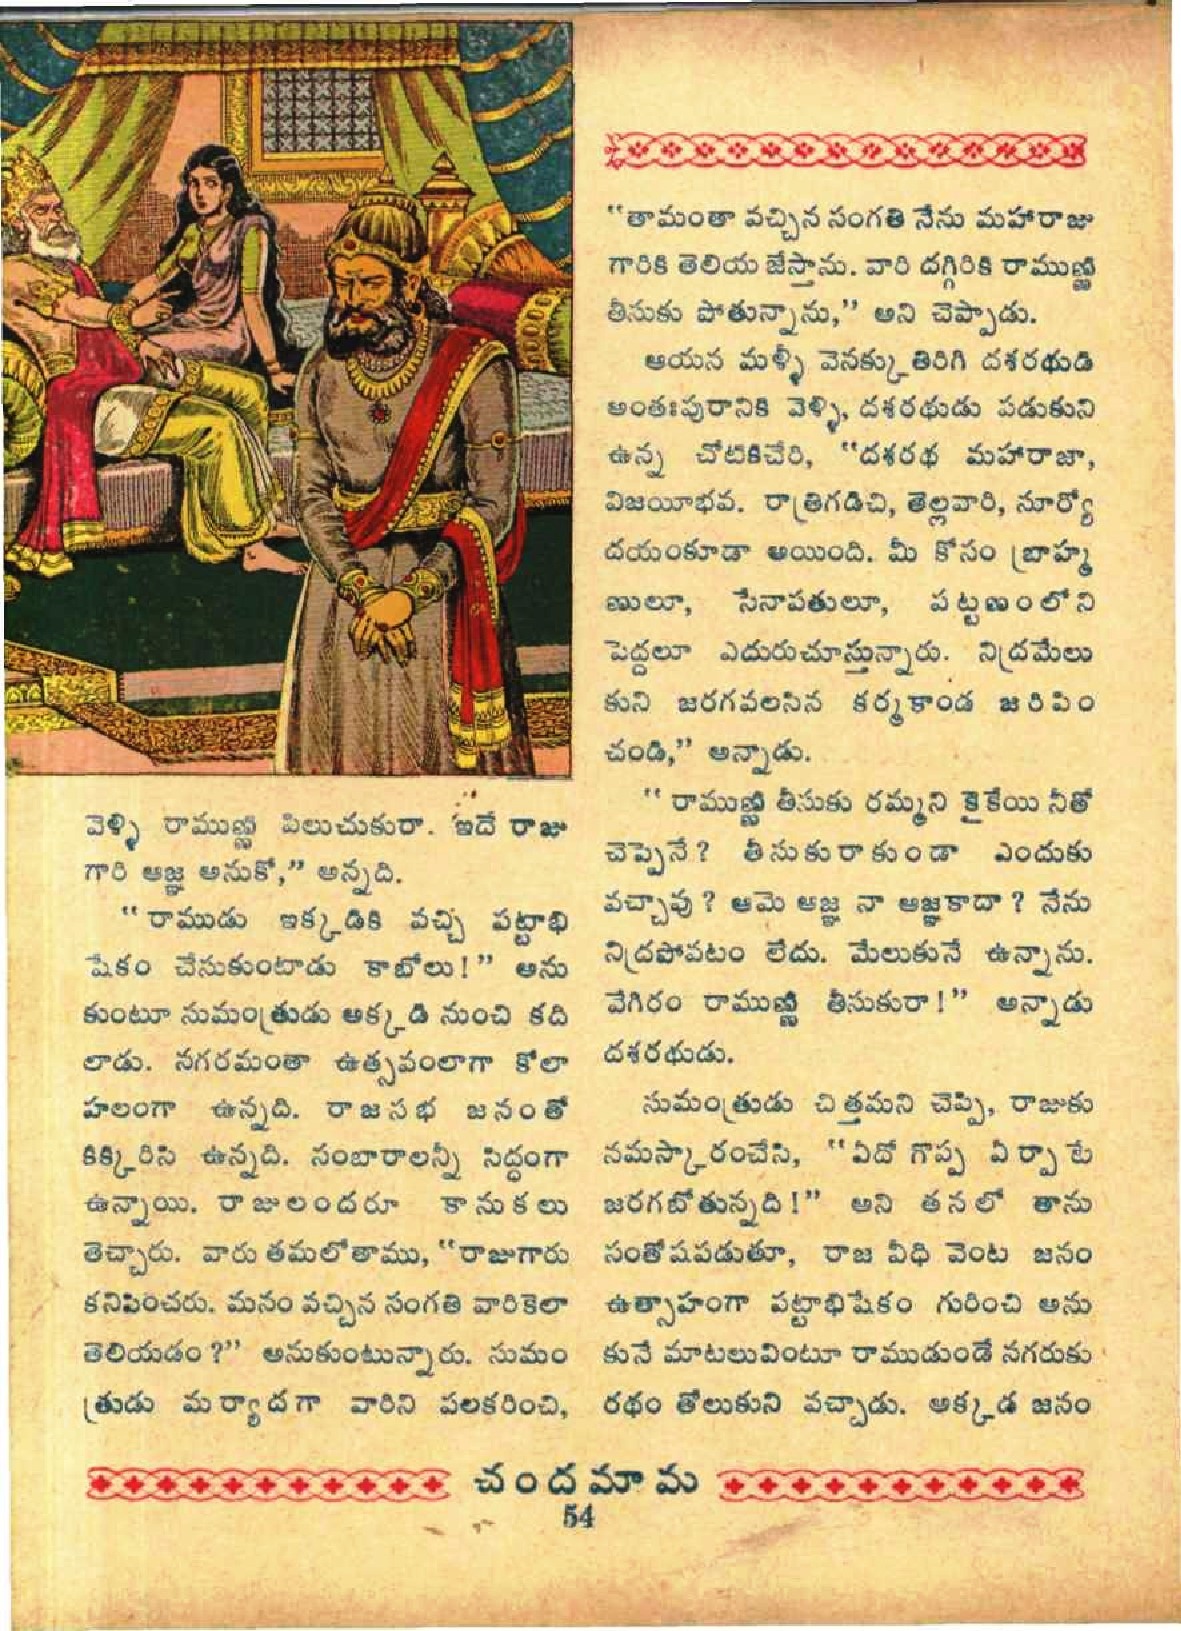 వెళ్ళి రాముణ్ణి పిలుచుకురా. ఇదే రాజు
గారి ఆజ్ఞ అనుకో,” అన్నది.
“రాముడు ఇక్కడికి వచ్చి పట్టాభి
షేకం చేసుకుంటాడు కాబోలు!” అను
కుంటూ సుమంత్రుడు అక్కడి నుంచి కది
లాడు. నగరమంతా ఉత్సవంలాగా కోలా
హలంగా ఉన్నది. రాజసభ జనంతో
కిక్కిరిసి ఉన్నది. సంబారాలన్నీ సిద్ధంగా
ఉన్నాయి. రాజులందరూ కానుకలు
తెచ్చారు. వారు తమలోతాము, “రాజుగారు
కనిపించరు. మనం వచ్చిన సంగతి వారికెలా
తెలియడం?” అనుకుంటున్నారు. సుమం
త్రుడు మర్యాదగా వారిని పలకరించి,
“తామంతా వచ్చిన సంగతి నేను మహారాజు
గారికి తెలియ జేస్తాను. వారి దగ్గిరికి రాముణ్ణి
తీసుకు పోతున్నాను,” అని చెప్పాడు.
ఆయన మళ్ళీ వెనక్కు తిరిగి దశరథుడి
అంతఃపురానికి వెళ్ళి, దశరథుడు పడుకుని
ఉన్న చోటికిచేరి, “దశరథ మహారాజా,
విజయీభవ. రాత్రిగడిచి, తెల్లవారి, సూర్యో
దయంకూడా అయింది. మీ కోసం బ్రాహ్మ
ణులూ, సేనాపతులూ, పట్టణంలోని
పెద్దలూ ఎదురుచూస్తున్నారు. నిద్రమేలు
కుని జరగవలసిన కర్మకాండ జరిపిం
చండి,” అన్నాడు.
“రాముణ్ణి తీసుకు రమ్మని కైకేయి నీతో
చెప్పెనే? తీసుకురాకుండా ఎందుకు
వచ్చావు? ఆమె ఆజ్ఞ నా ఆజ్ఞకాదా? నేను
నిద్రపోవటం లేదు. మేలుకునే ఉన్నాను.
వేగిరం రాముణ్ణి తీసుకురా!” అన్నాడు
దశరథుడు.
సుమంత్రుడు చిత్తమని చెప్పి, రాజుకు
నమస్కారంచేసి, “ఏదో గొప్ప ఏర్పాటే
జరగబోతున్నది!” అని తనలో తాను
సంతోషపడుతూ, రాజ వీధి వెంట జనం
ఉత్సాహంగా పట్టాభిషేకం గురించి అను
కునే మాటలువింటూ రాముడుండే నగరుకు
రథం తోలుకుని వచ్చాడు. అక్కడ జనం
చందమామ
54